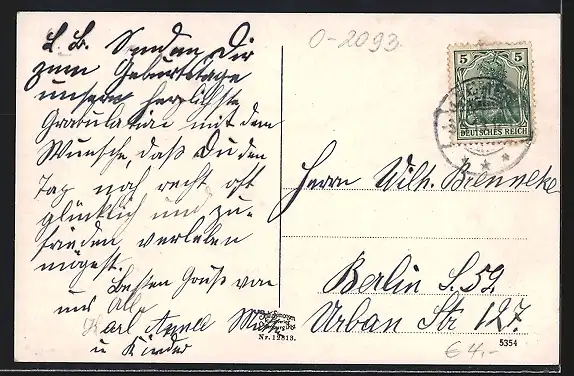 L. B. Senden Dir
zum Geburtstage
unsern herzlichste
Gratulation mit dem
Wunsche, daß Du den
Tag noch recht oft
glücklich und zu-
frieden verleben
mögest.
Besten Gruß von
uns Alle
Karl Anna
u Kinder
O-2093
5
DEUTSCHES REICH
5
Herrn Wilh. Brenneke
Berlin S. 59
Urban Str 127.
Nr. 12813.
5354
€4,-